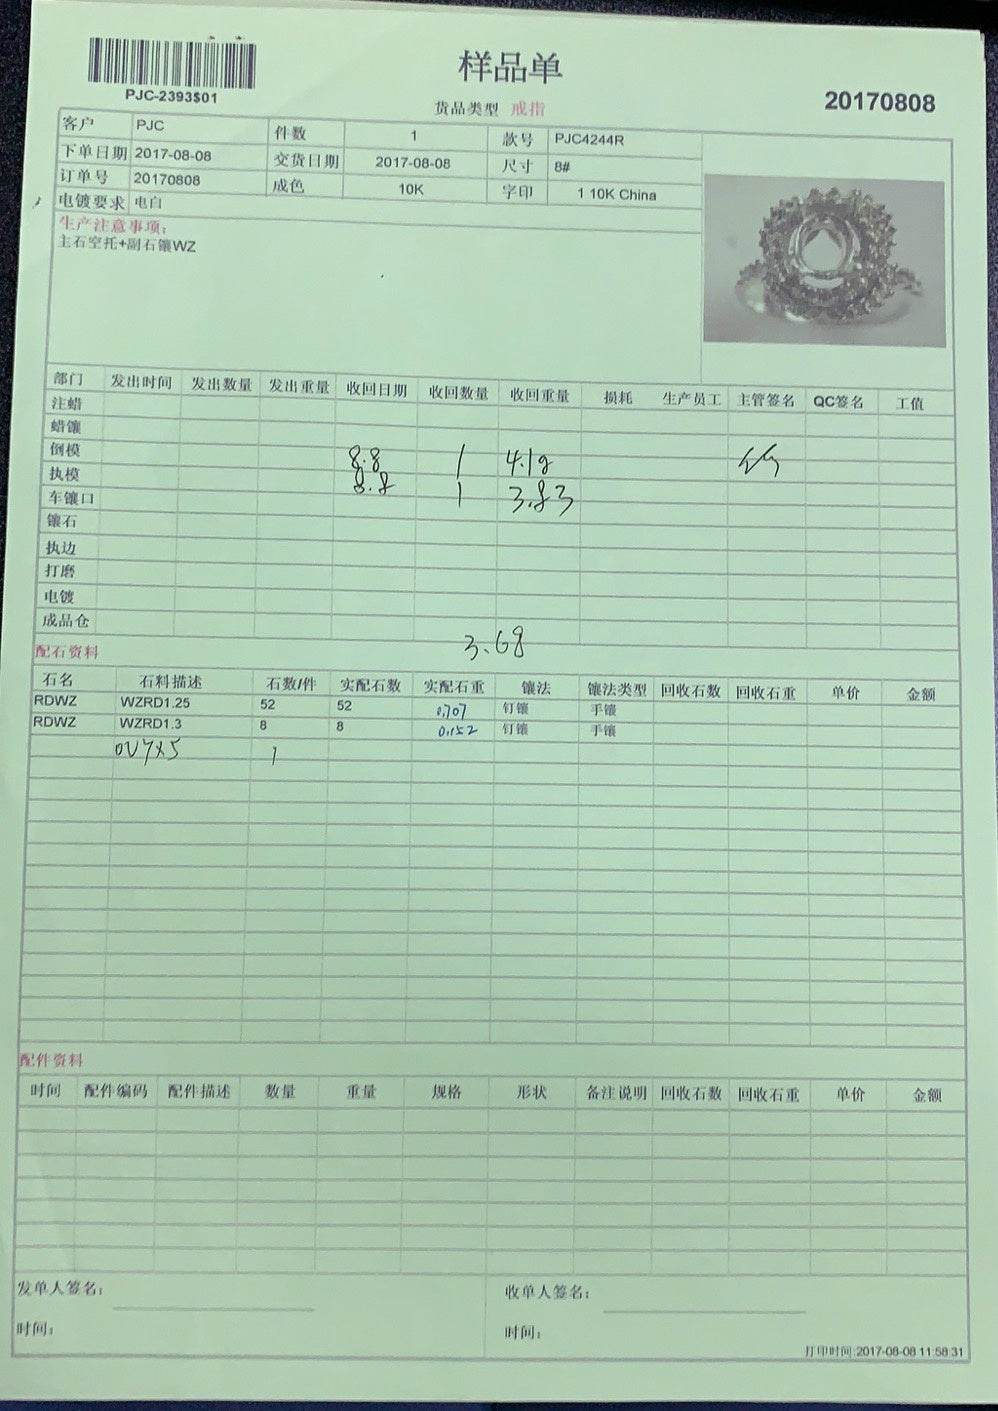 样品单
PJC-2393$01
货品类型 戒指
20170808
客户 PJC 件数 1 款号 PJC4244R
下单日期 2017-08-08 交货日期 2017-08-08 尺寸 8#
订单号 20170808 成色 10K 字印 1 10K China
电镀要求 电白
生产注意事项:
主石空托+副石镶WZ
部门 发出时间 发出数量 发出重量 收回日期 收回数量 收回重量 损耗 生产员工 主管签名 QC签名 工值
注蜡
蜡镶
倒模 8.8 1 4.19
执模 8.8 1 3.83
车镶口
镶石
执边
打磨
电镀
成品仓
3.68
配石资料
石名 石料描述 石数/件 实配石数 实配石重 镶法 镶法类型 回收石数 回收石重 单价 金额
RDWZ WZRD1.25 52 52 0.707 钉镶 手镶
RDWZ WZRD1.3 8 8 0.152 钉镶 手镶
OV7X5 1
配件资料
时间 配件编码 配件描述 数量 重量 规格 形状 备注说明 回收石数 回收石重 单价 金额
发单人签名: 收单人签名:
时间: 时间:
打印时间:2017-08-08 11:58:31